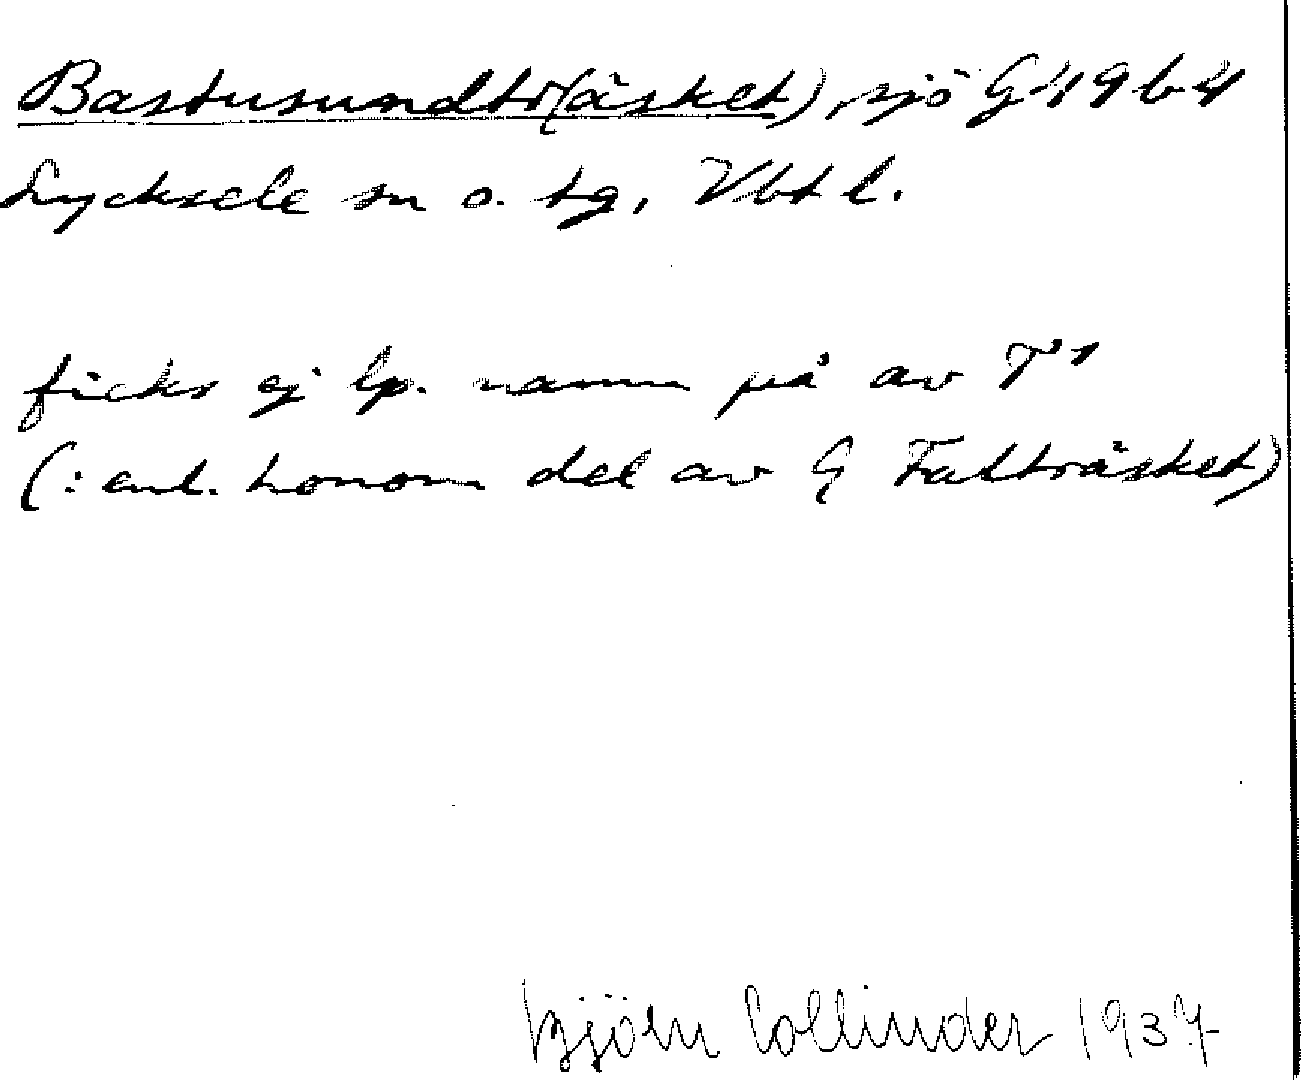 Bastusundtr(äsket), sjö G 49 b 4
Lycksele sn o. tg, Vbt l.
ficks ej lp. namn på av T1
(: enl. honom del av G Falträsket)
Björn Collinder 1937